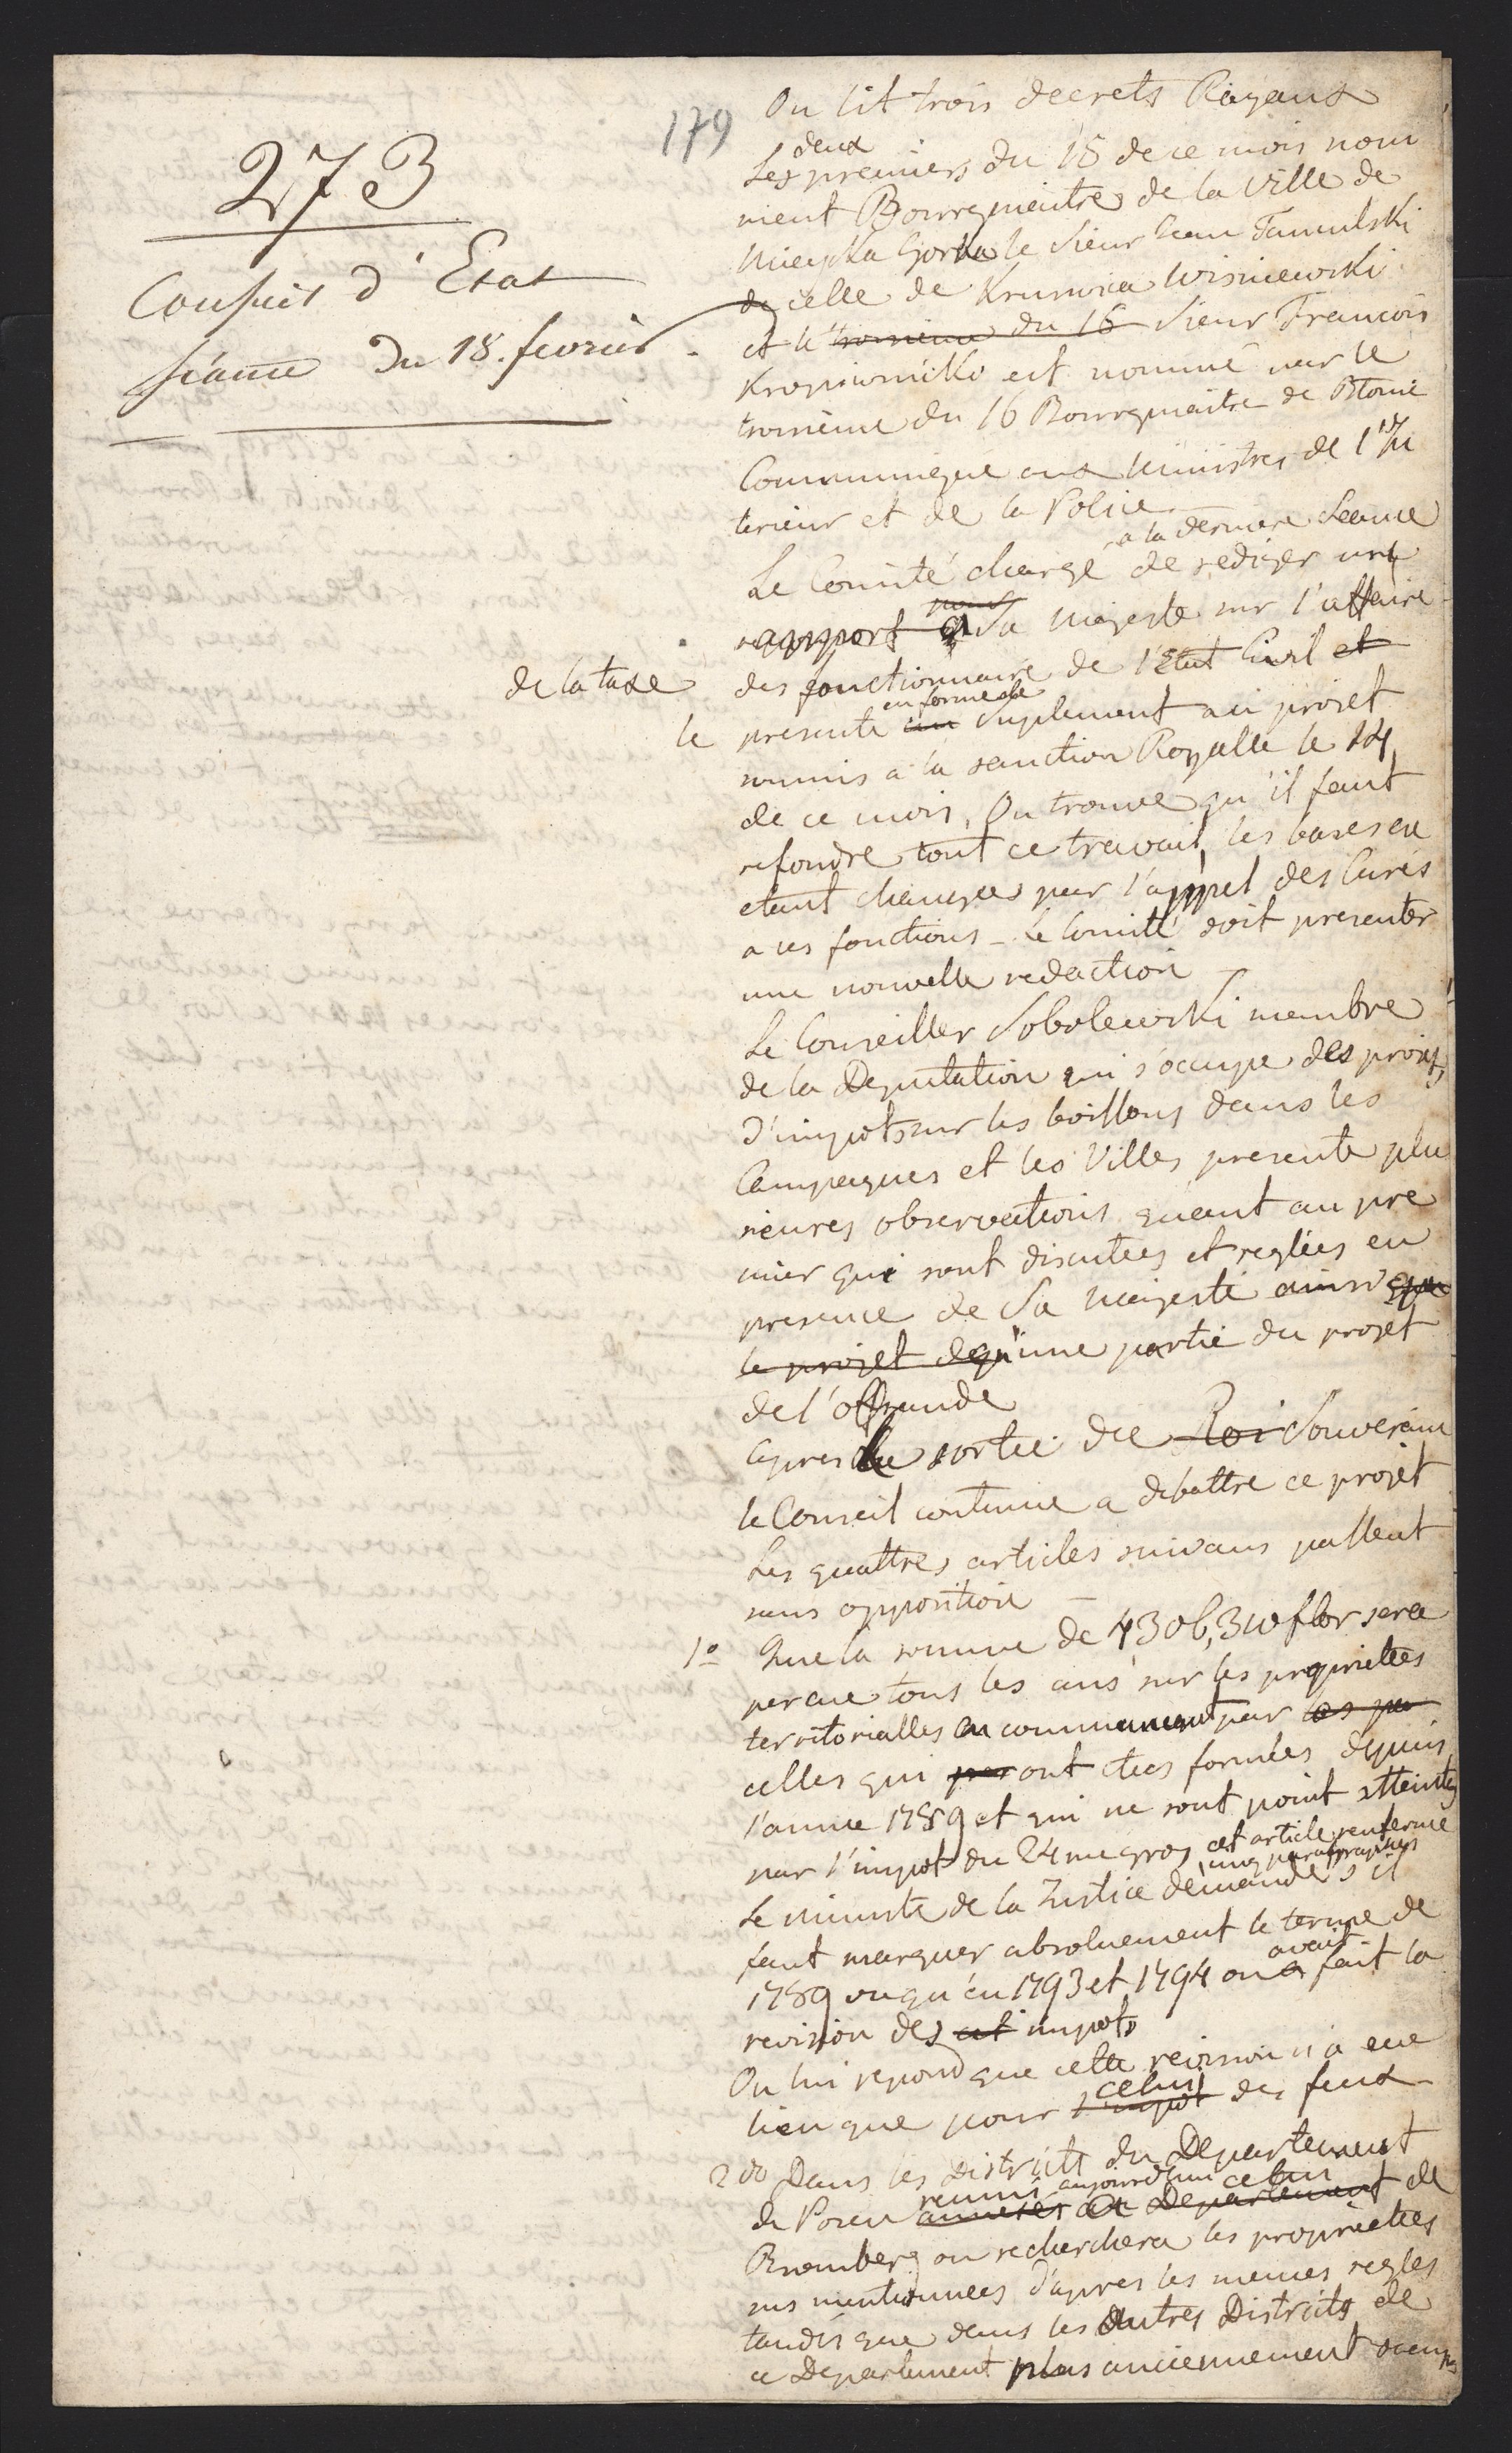 273
Conseil d'Etat
séance du 18. fevrier
179
On lit trois decrets Royaux
deux
Les premiers du 15 de ce mois nom
ment Bourgmeitre de la Ville de
Mieyska Gorka le Sieur Jean Famulski
de celle de Kruswica Wisniewski
et le troisieme du 16 Sieur Francois
Kropiwnicki est nommé par le
troisieme du 16 Bourgmaitre de Blonie
Communiqué aux Ministres de l'In
terieur et de la Police
a la derniere Seance
Le Comité chargé de rediger un
pour
rapport a Sa Majeste sur l'affaire
de la taxe
des fonctionnaire de l'Etat Civil et
en forme de
le presente un Suplement au projet
soumis a la sanction Royalle le 14
de ce mois, On trouve qu'il faut
refondre tout ce travail, les bases en
etant changées par l'appel des Curés
a ces fonctions - Le Comité doit presenter
une nouvelle redaction
Le Conseiller Sobolewski membre
de la Deputation qui s'occupe des projets
d'impots sur les boissons dans les
Campagnes et les Villes, presente plu
sieures observations quant au pre
mier qui sont discutées et reglées en
presence de Sa Majesté ainsi que
le projet de qu'une partie du projet
de l'offrande
Apres la sortie du Roi Souverain
le Conseil continue a debattre ce projet
Les quattres articles suivans passent
sans opposition
1o Que la somme de 4306,310 flor sera
percue tous les ans sur les proprietées
territorialles en commencant par les pr
celles qui ont etees formées depuis
l'annee 1789 et qui ne sont point atteintes
par l'impot du 24me gros, cet article renferme
cinq paragraphes
Le ministre de la Justice demande s'il
faut marquer absoluement le terme de
avait
1789 vu qu'en 1793 et 1794 on a fait la
revision des cet impots
On lui repond que cette revision n'a eue
celui
lieu que pour l'impot des feux
2do Dans les Districts du Departement
reuni aujourdhui celui
de Posen annexés au Departement de
Bromberg on recherchera les proprietées
sus mentionnées d'apres les memes regles
tandis que dans les Autres Districts de
ce Departement plus anciennement occupés